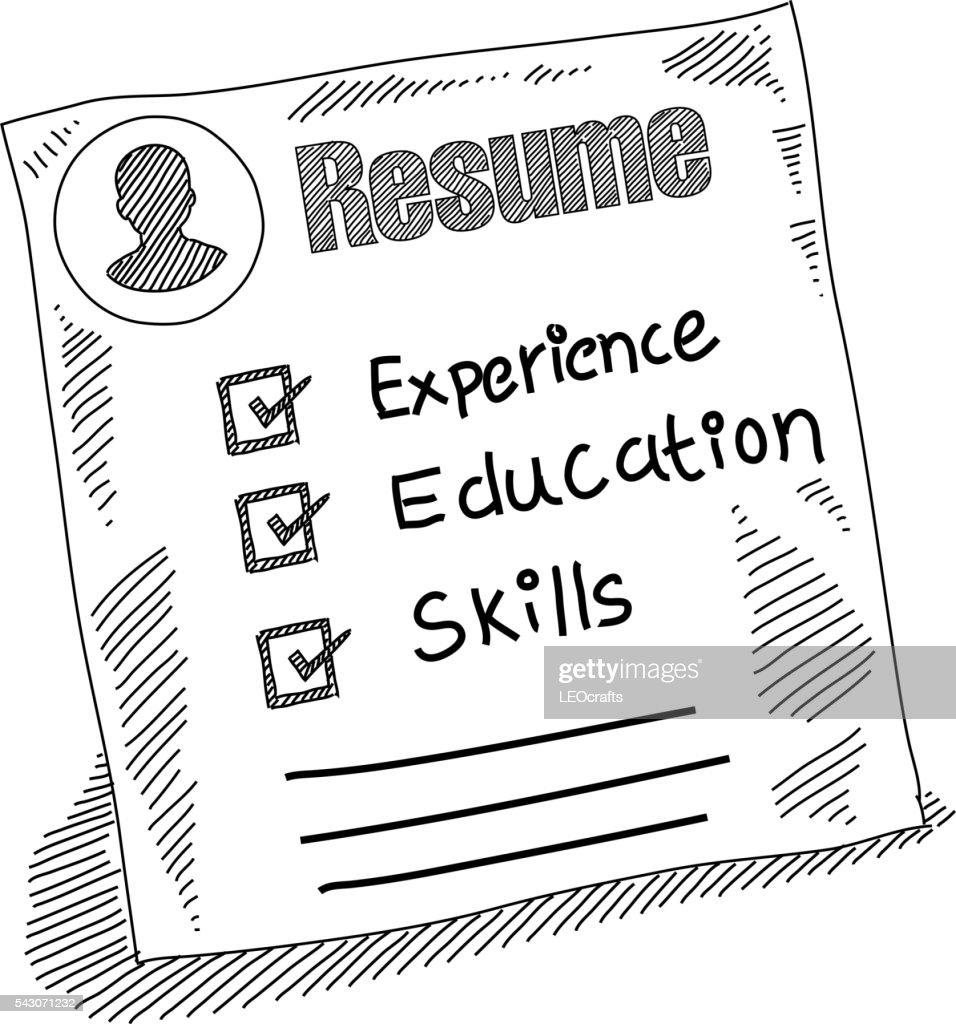 Resume
Experience
Education
Skills
gettyimages®
LEOcrafts
543071232